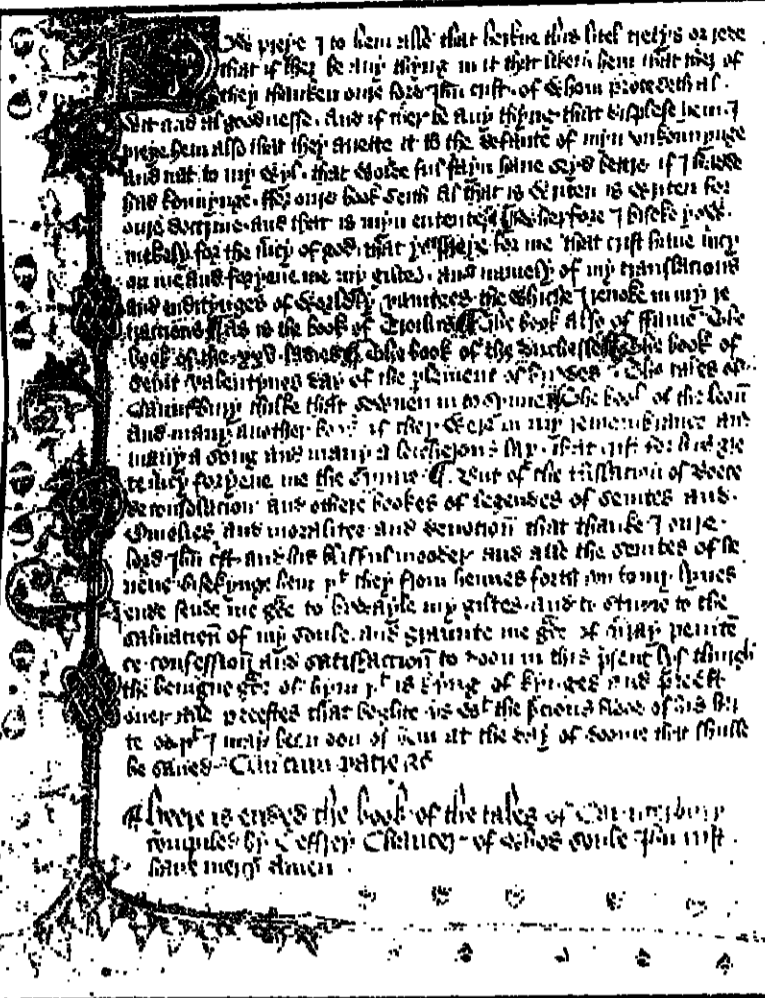 Now preye I to hem alle that herkne this litel tretys or rede
that if ther be any thyng in it that liketh hem that ther of
they thanken oure lord Ihu crist. of whom procedeth al
wit and al goodnesse. And if ther be any thyng that displese hem I
preye hem also that they arrette it to the defaute of myn unkonnynge
and nat to my wyl. that wolde ful fayn haue seyd bettre if I hadde
had konnynge. ffor oure book seith al that is writen is writen for
oure doctrine. and that is myn entente wherfore I biseke yow
mekely for the mcy of god. that ye preye for me that crist haue mcy
on me and foryeue me my giltes. and namely of my translacions
and enditynges of worldly vanitees the whiche I revoke in my re
tractions as is the book of Troilus The book also of ffame The
book of the .xxv. ladies The book of the duchesse The book of
seint valentynes day of the plement of briddes The tales of
Caunt'bury thilke that sownen in to synne The book of the leon
and many another book if they were in my remembrance and
many a song and many a lecherous lay. that crist for his gre
te mcy foryeue me the synne But of the tnslacion of Boece
de consolacion and othere bookes of legendes of seintes and
Omelies and moralitee and deuotion that thanke I oure
lord Ihu crist and his blisful mooder and alle the seintes of he
uene bisekynge hem þt they from hennes forth vn to my lyues
ende sende me gce to biwayle my giltes. and to studie to the
saluacion of my soule. and graunte me gce of verray penite
ce confession and satisfaction to doon in this psent lyf thurgh
the benigne gce of hym þt is kyng of kynges and preest
ouer alle preestes that boghte vs wt the pcious blood of his her
te so þt I may been oon of hem at the day of doome that shulle
be saued Qui cum patre &c
Heere is ended the book of the tales of Caunterbury
compiled by Geffrey Chaucer. of whos soule Ihu crist
haue mercy Amen .